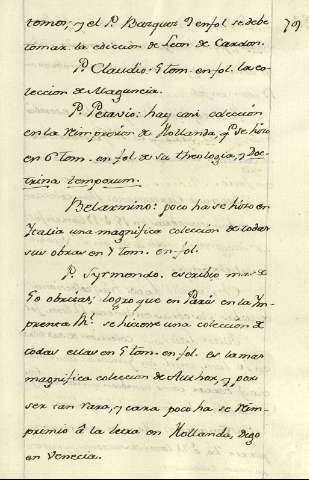 79
tomos; y el P. Bazquez y en fol. se debe
tomar la edicion de Leon de Cardon.
P. Claudio. 5 tom. en fol. la co-
leccion de Maguncia.
P. Petavio: hay casi colección
en la Rimpresion de Hollanda, q.e se hizo
en 6 tom. en fol. de su theologia, y Doc-
trina temporum.
Belarmino: poco ha se hizo en
Italia una magnifica coleccion de todas
sus obras en 7 tom. en fol.
P. Syrmondo. escribio mas de
50 obritas; logro que en Paris en la Ym-
prenta R.l se hiciese una coleccion de
todas ellas en 5 tom. en fol. es la mas
magnifica coleccion de Author, y por
ser tan rara, y cara poco ha se Rim-
primio â la letra en Hollanda, digo
en Venecia.